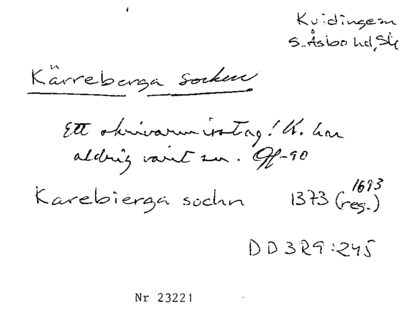 Kvidinge sn
S. Åsbo hd, Sk
Kärreberga socken
Ett skrivarmisstag! K. har
aldrig varit sn. Gf-90
Karebierga sochn 1373 (1693 reg.)
DD 3 R9:245
Nr 23221